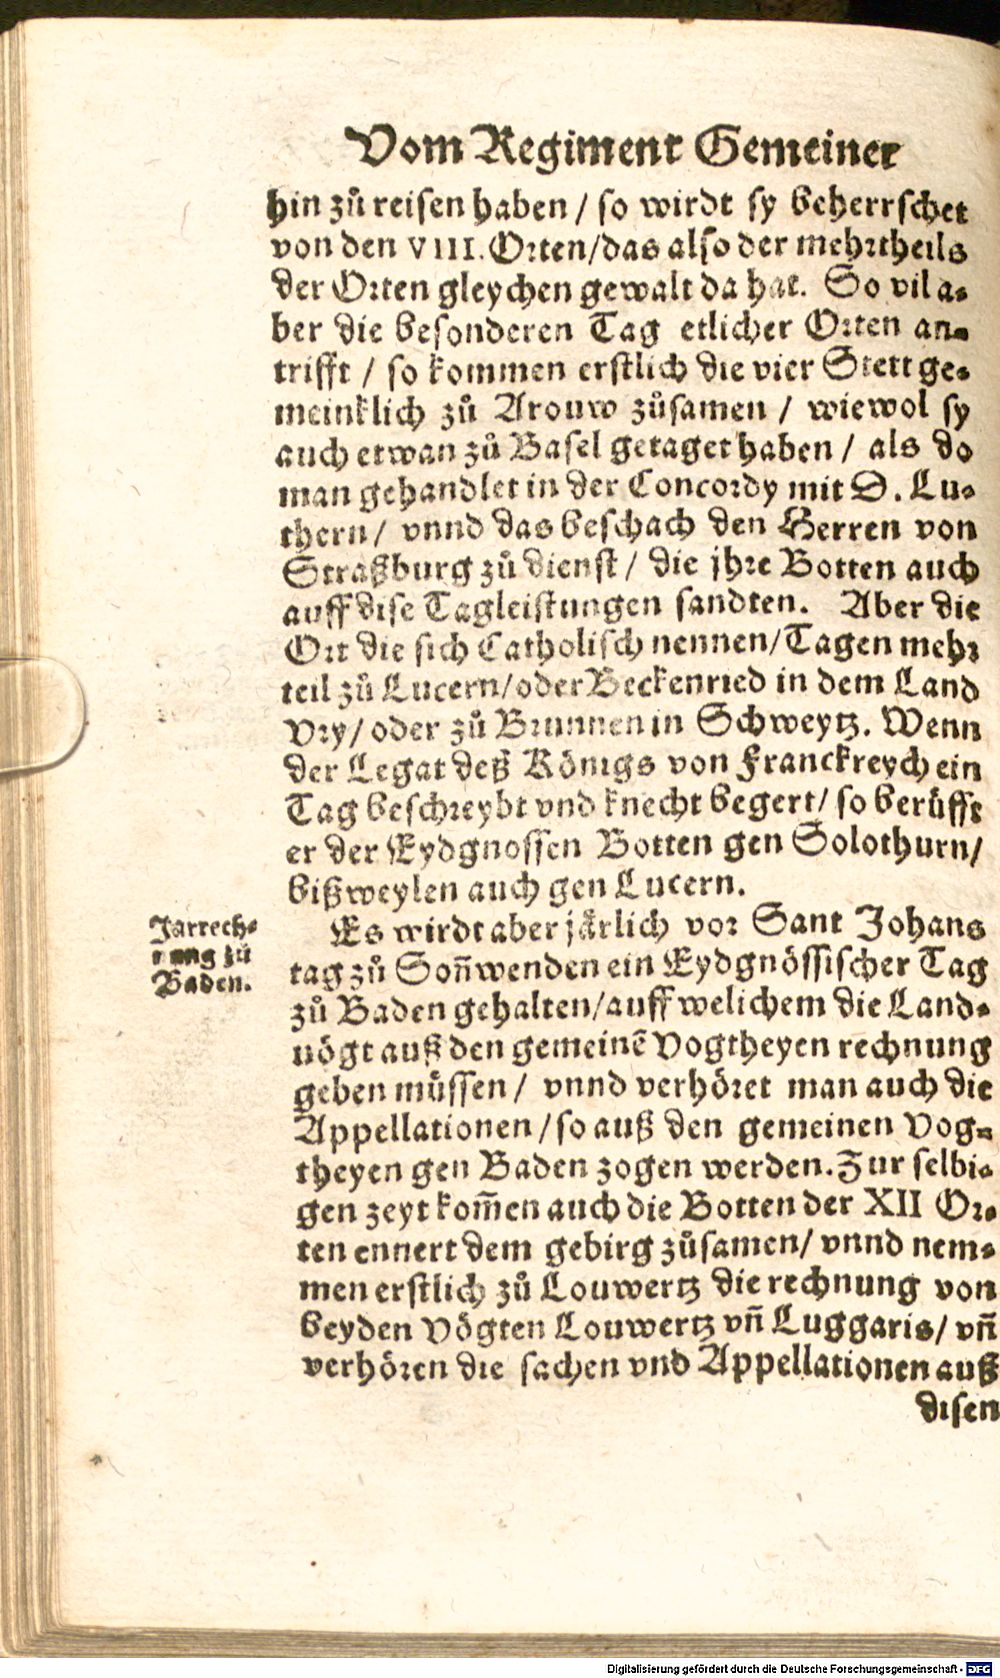 Vom Regiment Gemeiner
hin zů reisen haben / so wirdt sy beherrschet
von den VIII. Orten/das also der mehrtheils
der Orten gleychen gewalt da hat. So vil a-
ber die besonderen Tag etlicher Orten an-
trifft / so kommen erstlich die vier Stett ge-
meinklich zů Arouw zůsamen / wiewol sy
auch etwan zů Basel getaget haben / als do
man gehandlet in der Concordy mit D. Lu-
thern / vnnd das beschach den Herren von
Straßburg zů dienst / die jhre Botten auch
auff dise Tagleistungen sandten. Aber die
Ort die sich Catholisch nennen/Tagen mehr
teil zů Lucern/oder Beckenried in dem Land
Vry/oder zů Brunnen in Schweytz. Wenn
der Legat deß Königs von Franckreych ein
Tag beschreybt vnd knecht begert/ so berüfft
er der Eydgnossen Botten gen Solothurn/
bißweylen auch gen Lucern.
Jarrech-
nung zů
Baden.
Es wirdt aber järlich vor Sant Johans
tag zů Soñwenden ein Eydgnössischer Tag
zů Baden gehalten/auff welichem die Land-
uögt auß den gemeinẽ Vogtheyen rechnung
geben müssen / vnnd verhöret man auch die
Appellationen / so auß den gemeinen Vog-
theyen gen Baden zogen werden. Zur selbi-
gen zeyt kom̃en auch die Botten der XII Or-
ten ennert dem gebirg zůsamen/ vnnd nem-
men erstlich zů Louwertz die rechnung von
beyden Vögten Louwertz vñ Luggaris/ vñ
verhören die sachen vnd Appellationen auß
disen
Digitalisierung gefördert durch die Deutsche Forschungsgemeinschaft - DFG